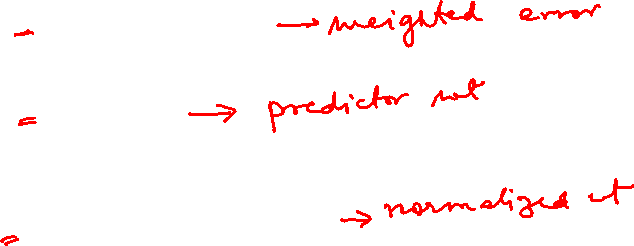 - → weighted error
= → predictor wt
= → normalized wt